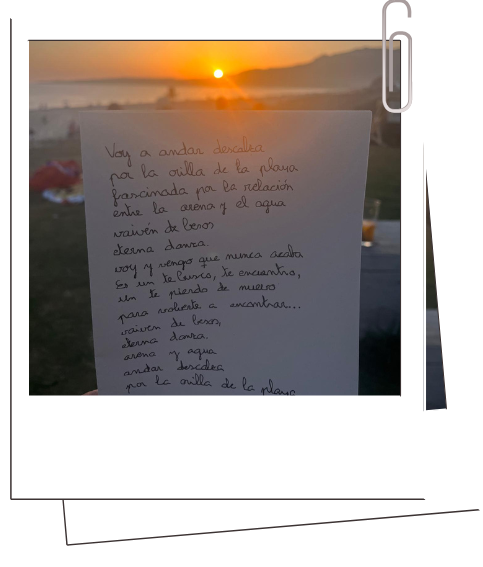 Voy a andar descalza
por la orilla de la playa
fascinada por la relación
entre la arena y el agua
vaivén de besos
eterna danza.
voy y vengo que nunca acaba
Es un te busco, te encuentro,
un te pierdo de nuevo
para volverte a encontrar...
vaivén de besos,
eterna danza.
arena y agua
andar descalza
por la orilla de la playa